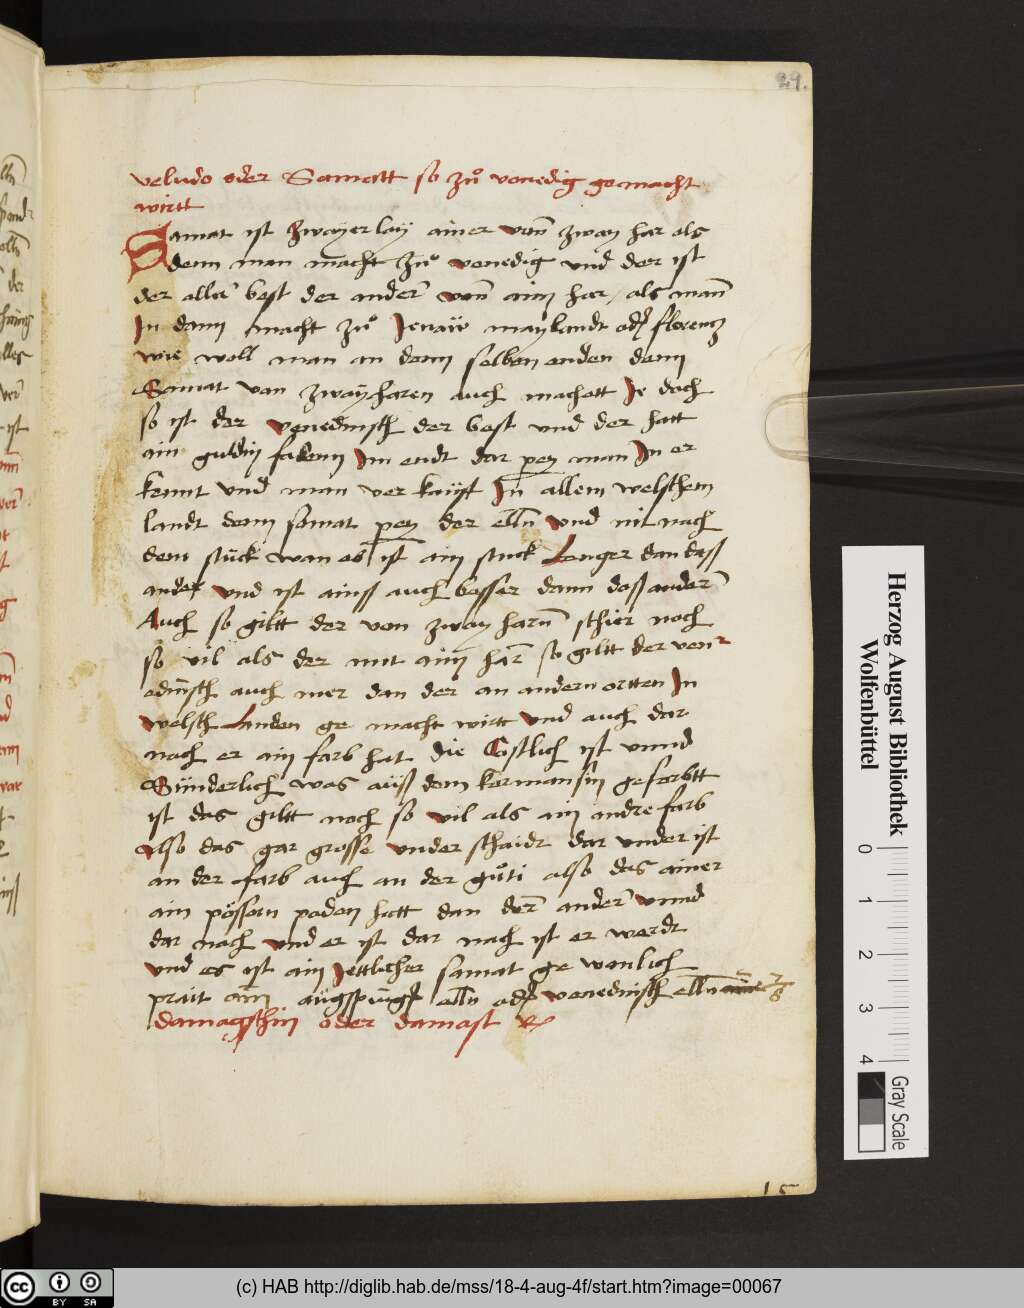 29.
veludo oder Samatt so zů venedig gemacht
wirtt
Samat ist zwayerlay ainer vonn zway har als
denn man macht zů venedig vnd der ist
der aller best der ander vonn aim har / als mann
In dann macht zů Jenaw maylandt oder florentz
wie woll man an denn selben enden denn
Samat von zwayharen auch machatt Je doch
so ist der venedinsch der best vnd der hatt
ain guldin fadenn Im endt dar pey man In er
kennt vnd man ver kaufft In allem welschem
landt denn samat pey der elln vnd nit nach
dem stuck wan es ist ain stuck Lenger dan daß
ander vnd ist ainss auch besser dann daß ander
Auch so giltt der von zway harn schier noch
so vil als der mit aim har so giltt der ven
edinsch auch mer dan der an andern ortten In
welsch Landen ge macht wirtt vnd auch dar
nach er ain farb hat die Costlich ist vnnd
Sünderlich was auß dem karmansin gefarbtt
ist das giltt noch so vil als ain andre farb
also das gar grosse vnder schaidt dar vnder ist
an der farb auch an der gůti also das ainer
ain pössern poden hatt dan der ander vnnd
dar nach vnd er ist dar nach ist er werdt
vnd es ist ain Jettlicher samat ge wonlich
prait ain augspurger elln oder venedinsch elln
damaschin oder damast
Herzog August Bibliothek
Wolfenbüttel
0
1
2
3
4
Gray Scale
cc BY SA
(c) HAB http://diglib.hab.de/mss/18-4-aug-4f/start.htm?image=00067